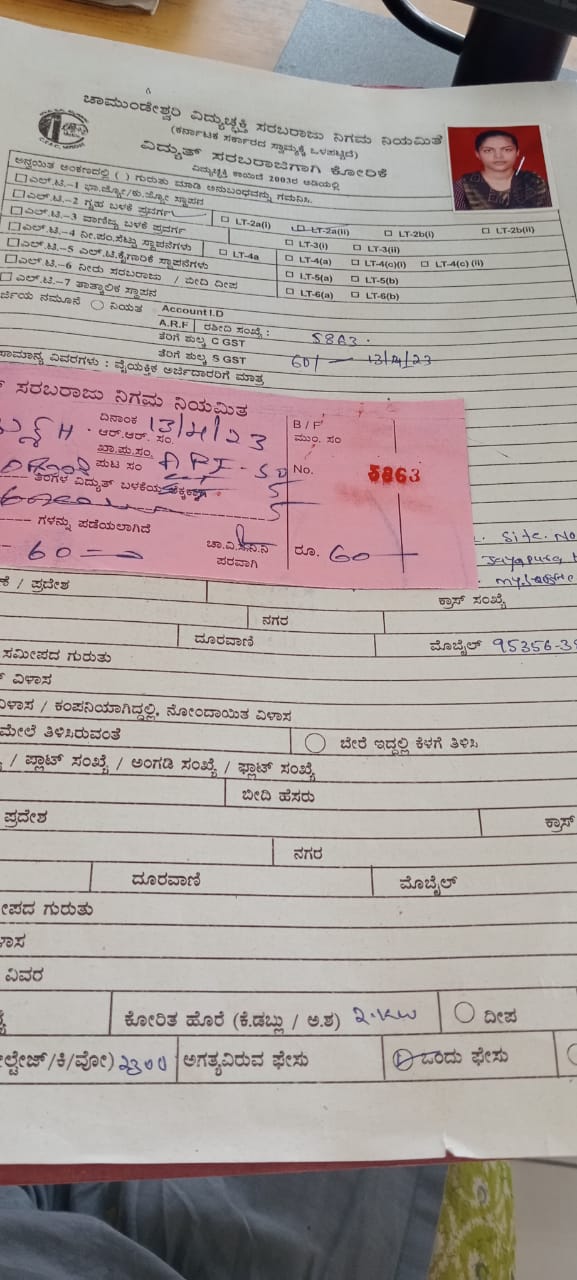 ಚಾಮುಂಡೇಶ್ವರಿ ವಿದ್ಯುಚ್ಛಕ್ತಿ ಸರಬರಾಜು ನಿಗಮ ನಿಯಮಿತ
(ಕರ್ನಾಟಕ ಸರ್ಕಾರದ ಸ್ವಾಮ್ಯಕ್ಕೆ ಒಳಪಟ್ಟಿದೆ)
ವಿದ್ಯುತ್ ಸರಬರಾಜಿಗಾಗಿ ಕೋರಿಕೆ
ವಿದ್ಯುಚ್ಛಕ್ತಿ ಕಾಯಿದೆ 2003ರ ಅಡಿಯಲ್ಲಿ
ಅನ್ವಯಿತ ಅಂಕಣದಲ್ಲಿ ( ) ಗುರುತು ಮಾಡಿ ಅನುಬಂಧವನ್ನು ಗಮನಿಸಿ.
☐ ಎಲ್.ಟಿ.-1 ಭಾ.ಜ್ಯೋ/ಕು.ಜ್ಯೋ ಸ್ಥಾಪನ
☐ ಎಲ್.ಟಿ.-2 ಗೃಹ ಬಳಕೆ ಪ್ರವರ್ಗ ☐ LT-2a(i) ☐ LT-2a(ii) ☐ LT-2b(i) ☐ LT-2b(ii)
☐ ಎಲ್.ಟಿ.-3 ವಾಣಿಜ್ಯ ಬಳಕೆ ಪ್ರವರ್ಗ ☐ LT-3(i) ☐ LT-3(ii)
☐ ಎಲ್.ಟಿ.-4 ನೀ.ಪಂ.ಸೆಟ್ಟು ಸ್ಥಾಪನೆಗಳು ☐ LT-4a ☐ LT-4(a) ☐ LT-4(c)(i) ☐ LT-4(c) (ii)
☐ ಎಲ್.ಟಿ.-5 ಎಲ್.ಟಿ.ಕೈಗಾರಿಕೆ ಸ್ಥಾಪನೆಗಳು ☐ LT-5(a) ☐ LT-5(b)
☐ ಎಲ್.ಟಿ.-6 ನೀರು ಸರಬರಾಜು / ಬೀದಿ ದೀಪ ☐ LT-6(a) ☐ LT-6(b)
☐ ಎಲ್.ಟಿ.-7 ತಾತ್ಕಾಲಿಕ ಸ್ಥಾಪನ
ರ್ಜಿಯ ನಮೂನೆ ನಿಯತ Account I.D
A.R.F ರಶೀದಿ ಸಂಖ್ಯೆ : 5863.
ತೆರಿಗೆ ಶುಲ್ಕ C GST
ತೆರಿಗೆ ಶುಲ್ಕ S GST 60/- 13/4/23
ಸಾಮಾನ್ಯ ವಿವರಗಳು : ವೈಯಕ್ತಿಕ ಅರ್ಜಿದಾರರಿಗೆ ಮಾತ್ರ
ಸರಬರಾಜು ನಿಗಮ ನಿಯಮಿತ
ದಿನಾಂಕ 13/4/23 B / F
ಆರ್.ಆರ್. ಸಂ. ಮುಂ. ಸಂ
ಖಾ.ಪು.ಸಂ.
ಪುಟ ಸಂ No. 5863
ತಿಂಗಳ ವಿದ್ಯುತ್ ಬಳಕೆಯ
ಗಳನ್ನು ಪಡೆಯಲಾಗಿದೆ
60 ಚಾ.ವಿ.ಸ.ನಿ.ನಿ ರೂ. 60
ಪರವಾಗಿ
Site. No
Jayapura
ಪ್ರದೇಶ ಕ್ರಾಸ್ ಸಂಖ್ಯೆ
ನಗರ
ದೂರವಾಣಿ ಮೊಬೈಲ್ 95356-
ಸಮೀಪದ ಗುರುತು
ವಿಳಾಸ
ವಿಳಾಸ / ಕಂಪನಿಯಾಗಿದ್ದಲ್ಲಿ, ನೋಂದಾಯಿತ ವಿಳಾಸ
ಮೇಲೆ ತಿಳಿಸಿರುವಂತೆ ಬೇರೆ ಇದ್ದಲ್ಲಿ ಕೆಳಗೆ ತಿಳಿಸಿ
/ ಪ್ಲಾಟ್ ಸಂಖ್ಯೆ / ಅಂಗಡಿ ಸಂಖ್ಯೆ / ಫ್ಲಾಟ್ ಸಂಖ್ಯೆ
ಬೀದಿ ಹೆಸರು
ಪ್ರದೇಶ ಕ್ರಾಸ್
ನಗರ
ದೂರವಾಣಿ ಮೊಬೈಲ್
ೀಪದ ಗುರುತು
ಳಾಸ
ವಿವರ
ಕೋರಿತ ಹೊರೆ (ಕೆ.ಡಬ್ಲು / ಅ.ಶ) 2.KW ದೀಪ
ೋಲ್ಟೇಜ್/ಕಿ/ವೋ) 2300 ಅಗತ್ಯವಿರುವ ಫೇಸು ಒಂದು ಫೇಸು